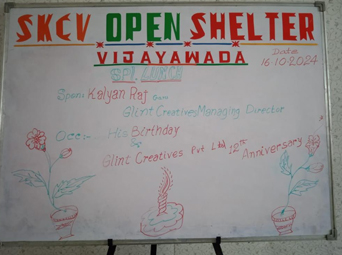 SKCV OPEN SHELTER
VIJAYAWADA
Date
16-10-2024
SPL. LUNCH
Spons Kalyan Raj Garu
Glint Creatives Managing Director
Occ :- His Birthday
&
Glint Creatives Pvt Ltd 12th Anniversary